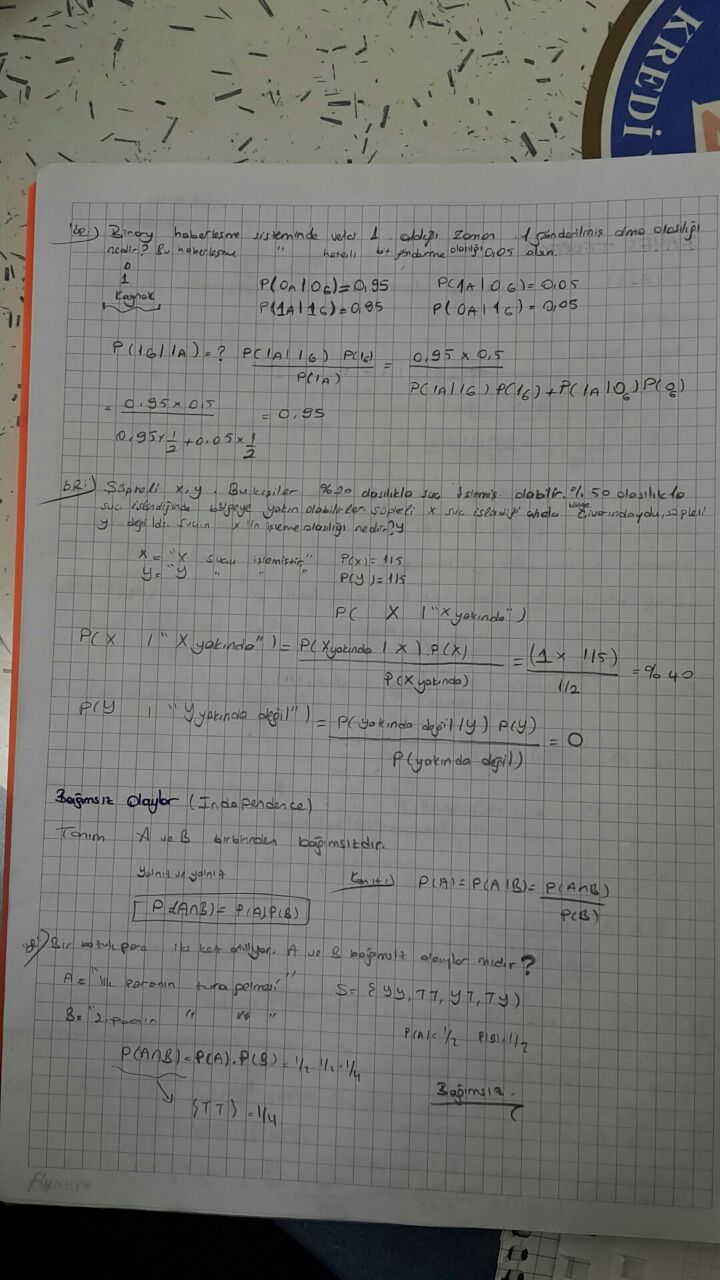 KREDİ
Binary haberleşme sisteminde veici 1 aldığı zaman 1 gönderilmiş olma olasılığı
nedir? Bu haberleşme " hatalı bit gönderme olasılığı 0,05 olsun.
0
1
Kaynak
P(0A|0G)=0,95 P(1A|0G)=0.05
P(1A|1G)=0,95 P(0A|1G)=0.05
P(1G|1A)=? P(1A|1G) P(1G) / P(1A) = 0.95 x 0.5 / P(1A|1G) P(1G)+P(1A|0G)P(0G)
= 0.95 x 0.5 / 0.95x1/2+0.05x1/2 = 0.95
Şüpheli x,y. Bu kişiler %20 olasılıkla suç işlemiş olabilir. %50 olasılıkla
suç işlendiğinde bölgeye yakın olabilirler. Şüpheli x suç işlediği anda bölge civarındaydı, şüpheli
y değildi. suçun x'in işleme olasılığı nedir? y
x = "X suçu işlemiştir" P(x)=1/5
y= "y " " P(y)=1/5
P( X | "X yakında")
P(X | "X yakında")= P(Xyakında | X).P(X) / P(X yakında) = (1x 1/5) / 1/2 = %40
P(Y | "Y yakında değil") = P(yakında değil|y) P(y) / P(yakında değil) = 0
Bağımsız Olaylar (Independence)
Tanım A ve B birbirinden bağımsızdır.
Yalnız ve yalnız
P(A)=P(A|B)= P(A∩B) / P(B)
P(A∩B)= P(A)P(B)
Bir para iki kez atılıyor. A ve B bağımsız olaylar mıdır?
A= "ilk paranın tura gelmesi" S= {YY, TT, YT, TY}
B= "2. " " "
P(A)=1/2 P(B)=1/2
P(A∩B)=P(A).P(B)=1/2 . 1/2 = 1/4
Bağımsız.
{TT}=1/4